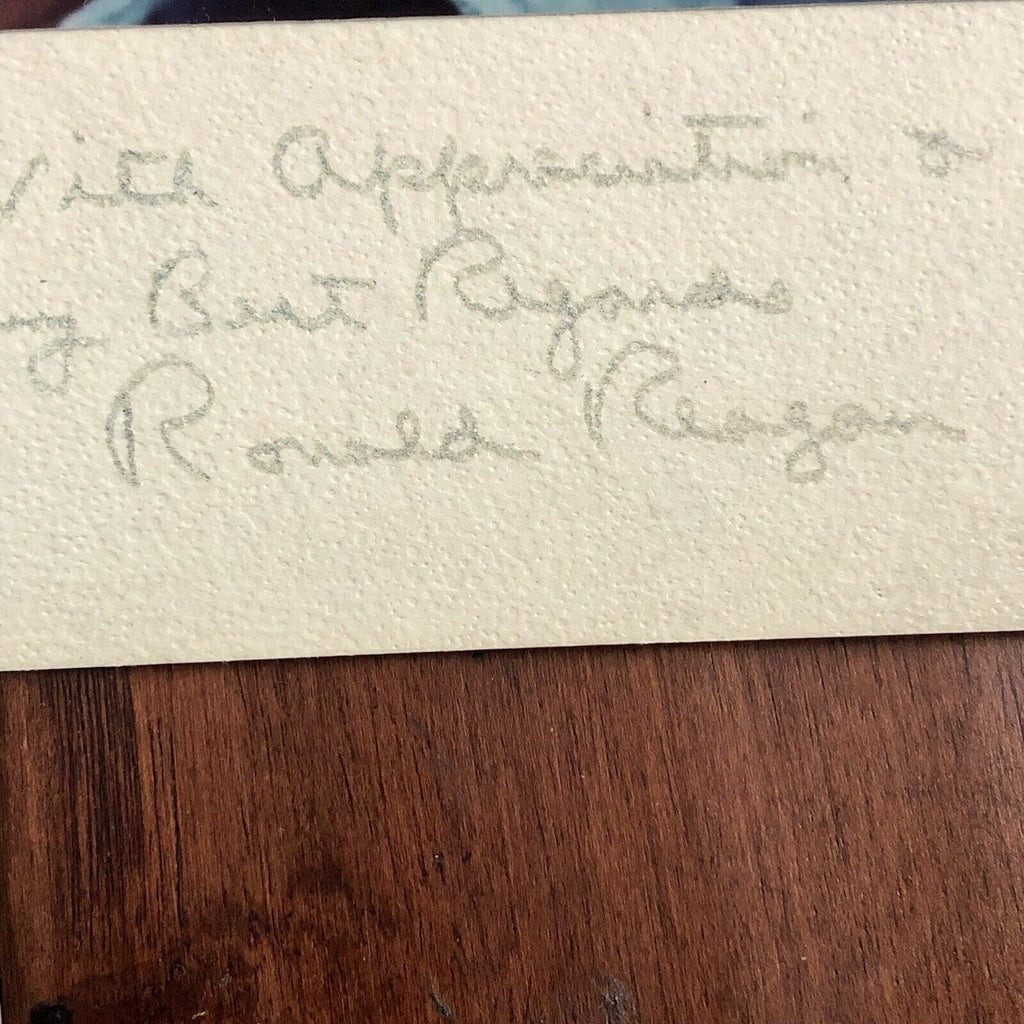 With Appreciation &
my Best Regards
Ronald Reagan